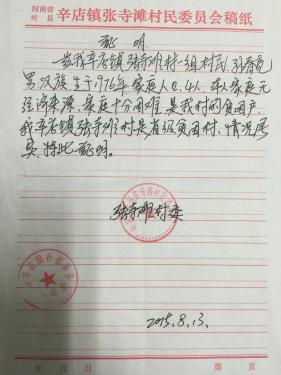 河南省
叶县 辛店镇张寺滩村民委员会稿纸
证明
兹我辛店镇张寺滩村一组村民
男,汉族生于1976年家庭人口4人,本人家庭无
经济来源,家庭十分困难是我村的贫困户,
我辛店镇张寺滩村是省级贫困村,情况属
实,特此证明。
张寺滩村委
2015.8.13.
年 月 日 第 页